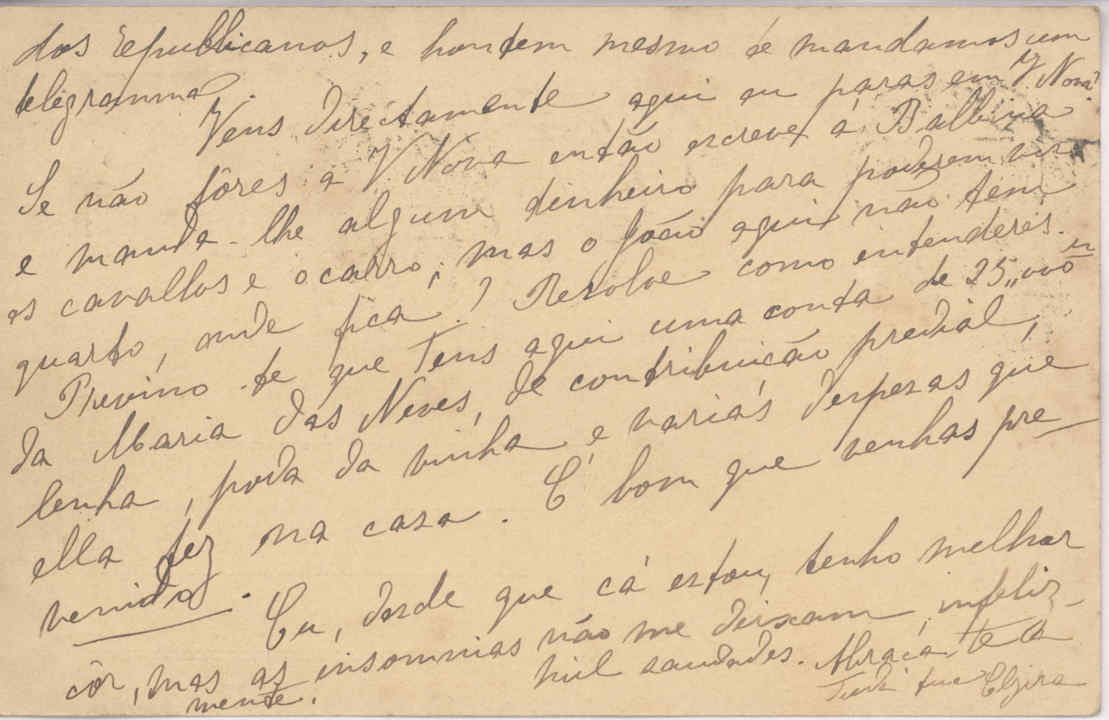 dos republicanos, e hontem mesmo te mandamos um
telegramma.
Vens directamente aqui ou paras em V Nova?
Se não fôres a V Nova então escreve á Balbina
e manda-lhe algum dinheiro para poderem vir
os cavallos e o carro; mas o João aqui não tem
quarto, onde fica? Resolve como entenderes.
Previno-te que tens aqui uma conta de 25,,000 rs
da Maria das Neves, de contribuição predial,
lenha, poda da vinha e varias despezas que
ella fez na casa. É bom que venhas pre-
venido.
Eu, desde que cá estou, tenho melhor
côr, mas as insommias não me deixam infeliz-
mente.
Mil saudades. Abraça-te a
tua Elzira